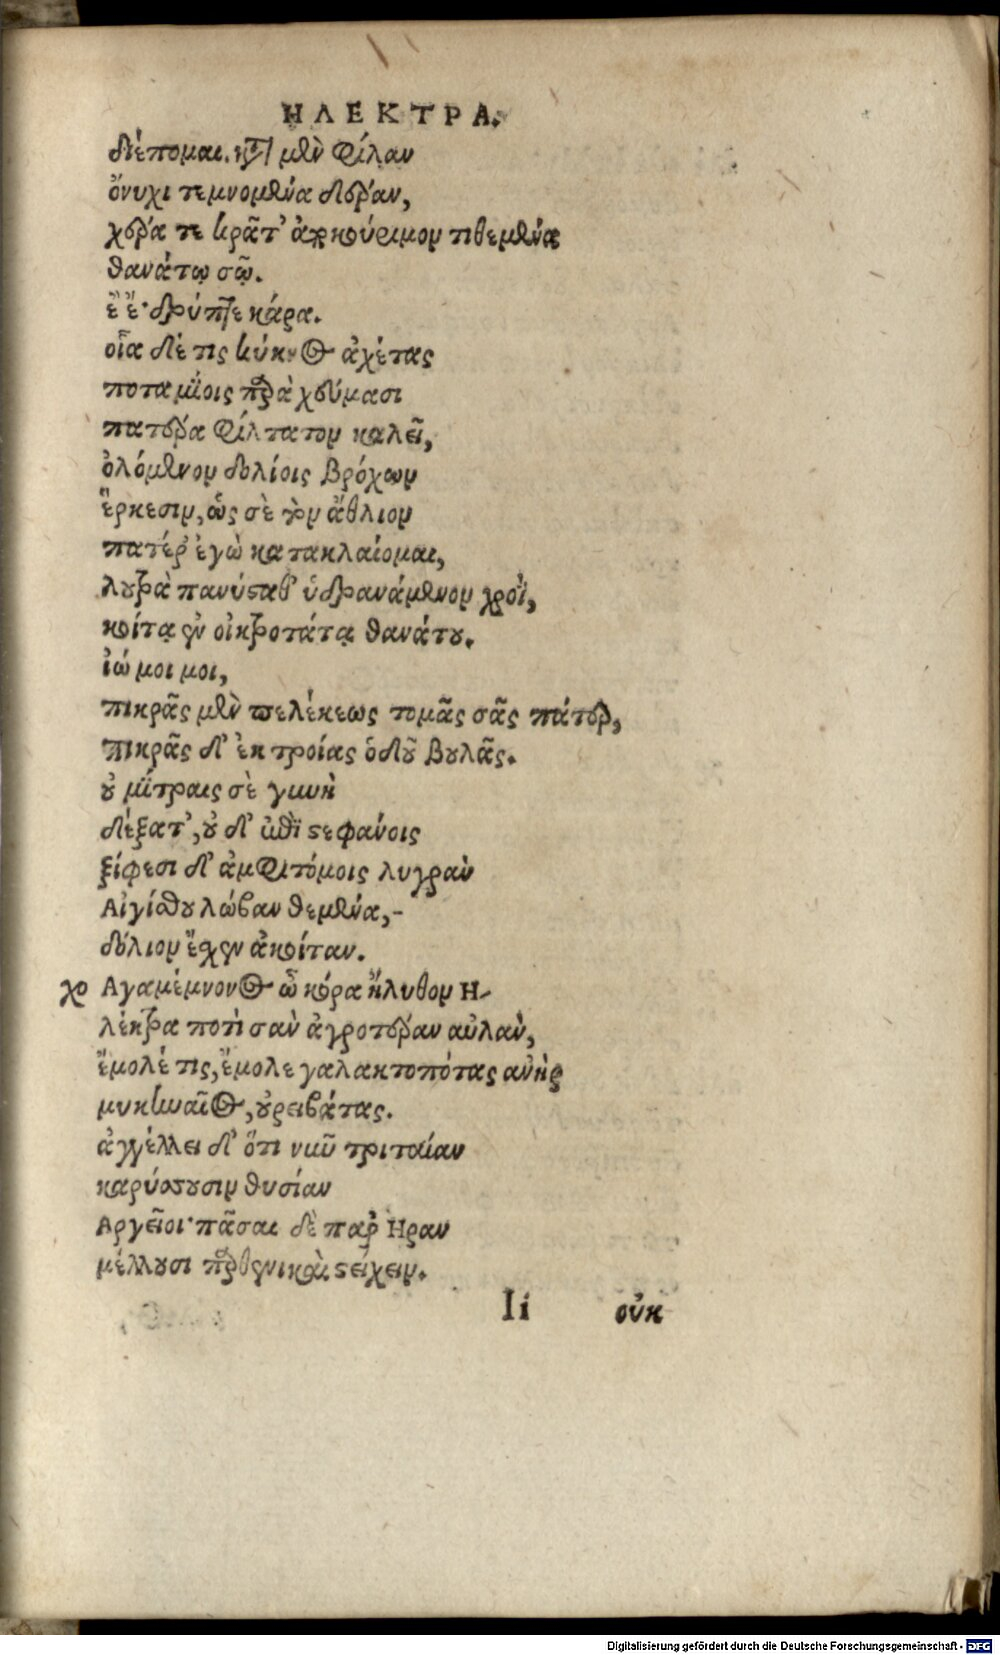 ΗΛΕΚΤΡΑ.
διέπομαι. κατὰ μὲν φίλαν
ὄνυχι τεμνομένα δέραν,
χέρα τε κρᾶτ' ἀπκούριμον τιθεμένα
θανάτῳ σῷ.
ἒ ἔ· δρύπτε κάρα.
οἷα δέ τις κύκνος ἀχέτας
ποταμίοις παρὰ χεύμασι
πατέρα φίλτατον καλεῖ,
ὀλόμενον δολίοις βρόχων
ἕρκεσιν, ὥς σὲ τὸν ἄθλιον
πατέρ' ἐγὼ κατακλαίομαι,
λουτρὰ πανύσταθ' ὑδρανάμενον χροῒ,
κοίτᾳ ἐν οἰκτροτάτᾳ θανάτου.
ἰώ μοι μοι,
πικρᾶς μὲν πελέκεως τομᾶς σᾶς πάτερ,
πικρᾶς δ' ἐκ τροίας ὁδοῦ βουλᾶς.
οὐ μίτραις σὲ γυνὴ
δέξατ', οὐ δ' ἐπὶ στεφάνοις
ξίφεσι δ' ἀμφιτόμοις λυγρὰν
Αἰγίσθου λώβαν θεμένα,-
δόλιον ἔσχεν ἀκοίταν.
χο Αγαμέμνονος ὦ κόρα ἤλυθον Η-
λέκτρα ποτὶ σὰν ἀγροτέραν αὐλὰν,
ἔμολέ τις, ἔμολε γαλακτοπότας ἀνὴρ
μυκηναῖος, οὐρειβάτας.
ἀγγέλλει δ' ὅτι νῦν τριταίαν
καρύσσουσιν θυσίαν
Αργεῖοι· πᾶσαι δὲ παρ' Ηραν
μέλλουσι παρθενικαὶ στείχειν.
Ii οὐκ
Digitalisierung gefördert durch die Deutsche Forschungsgemeinschaft - DFG